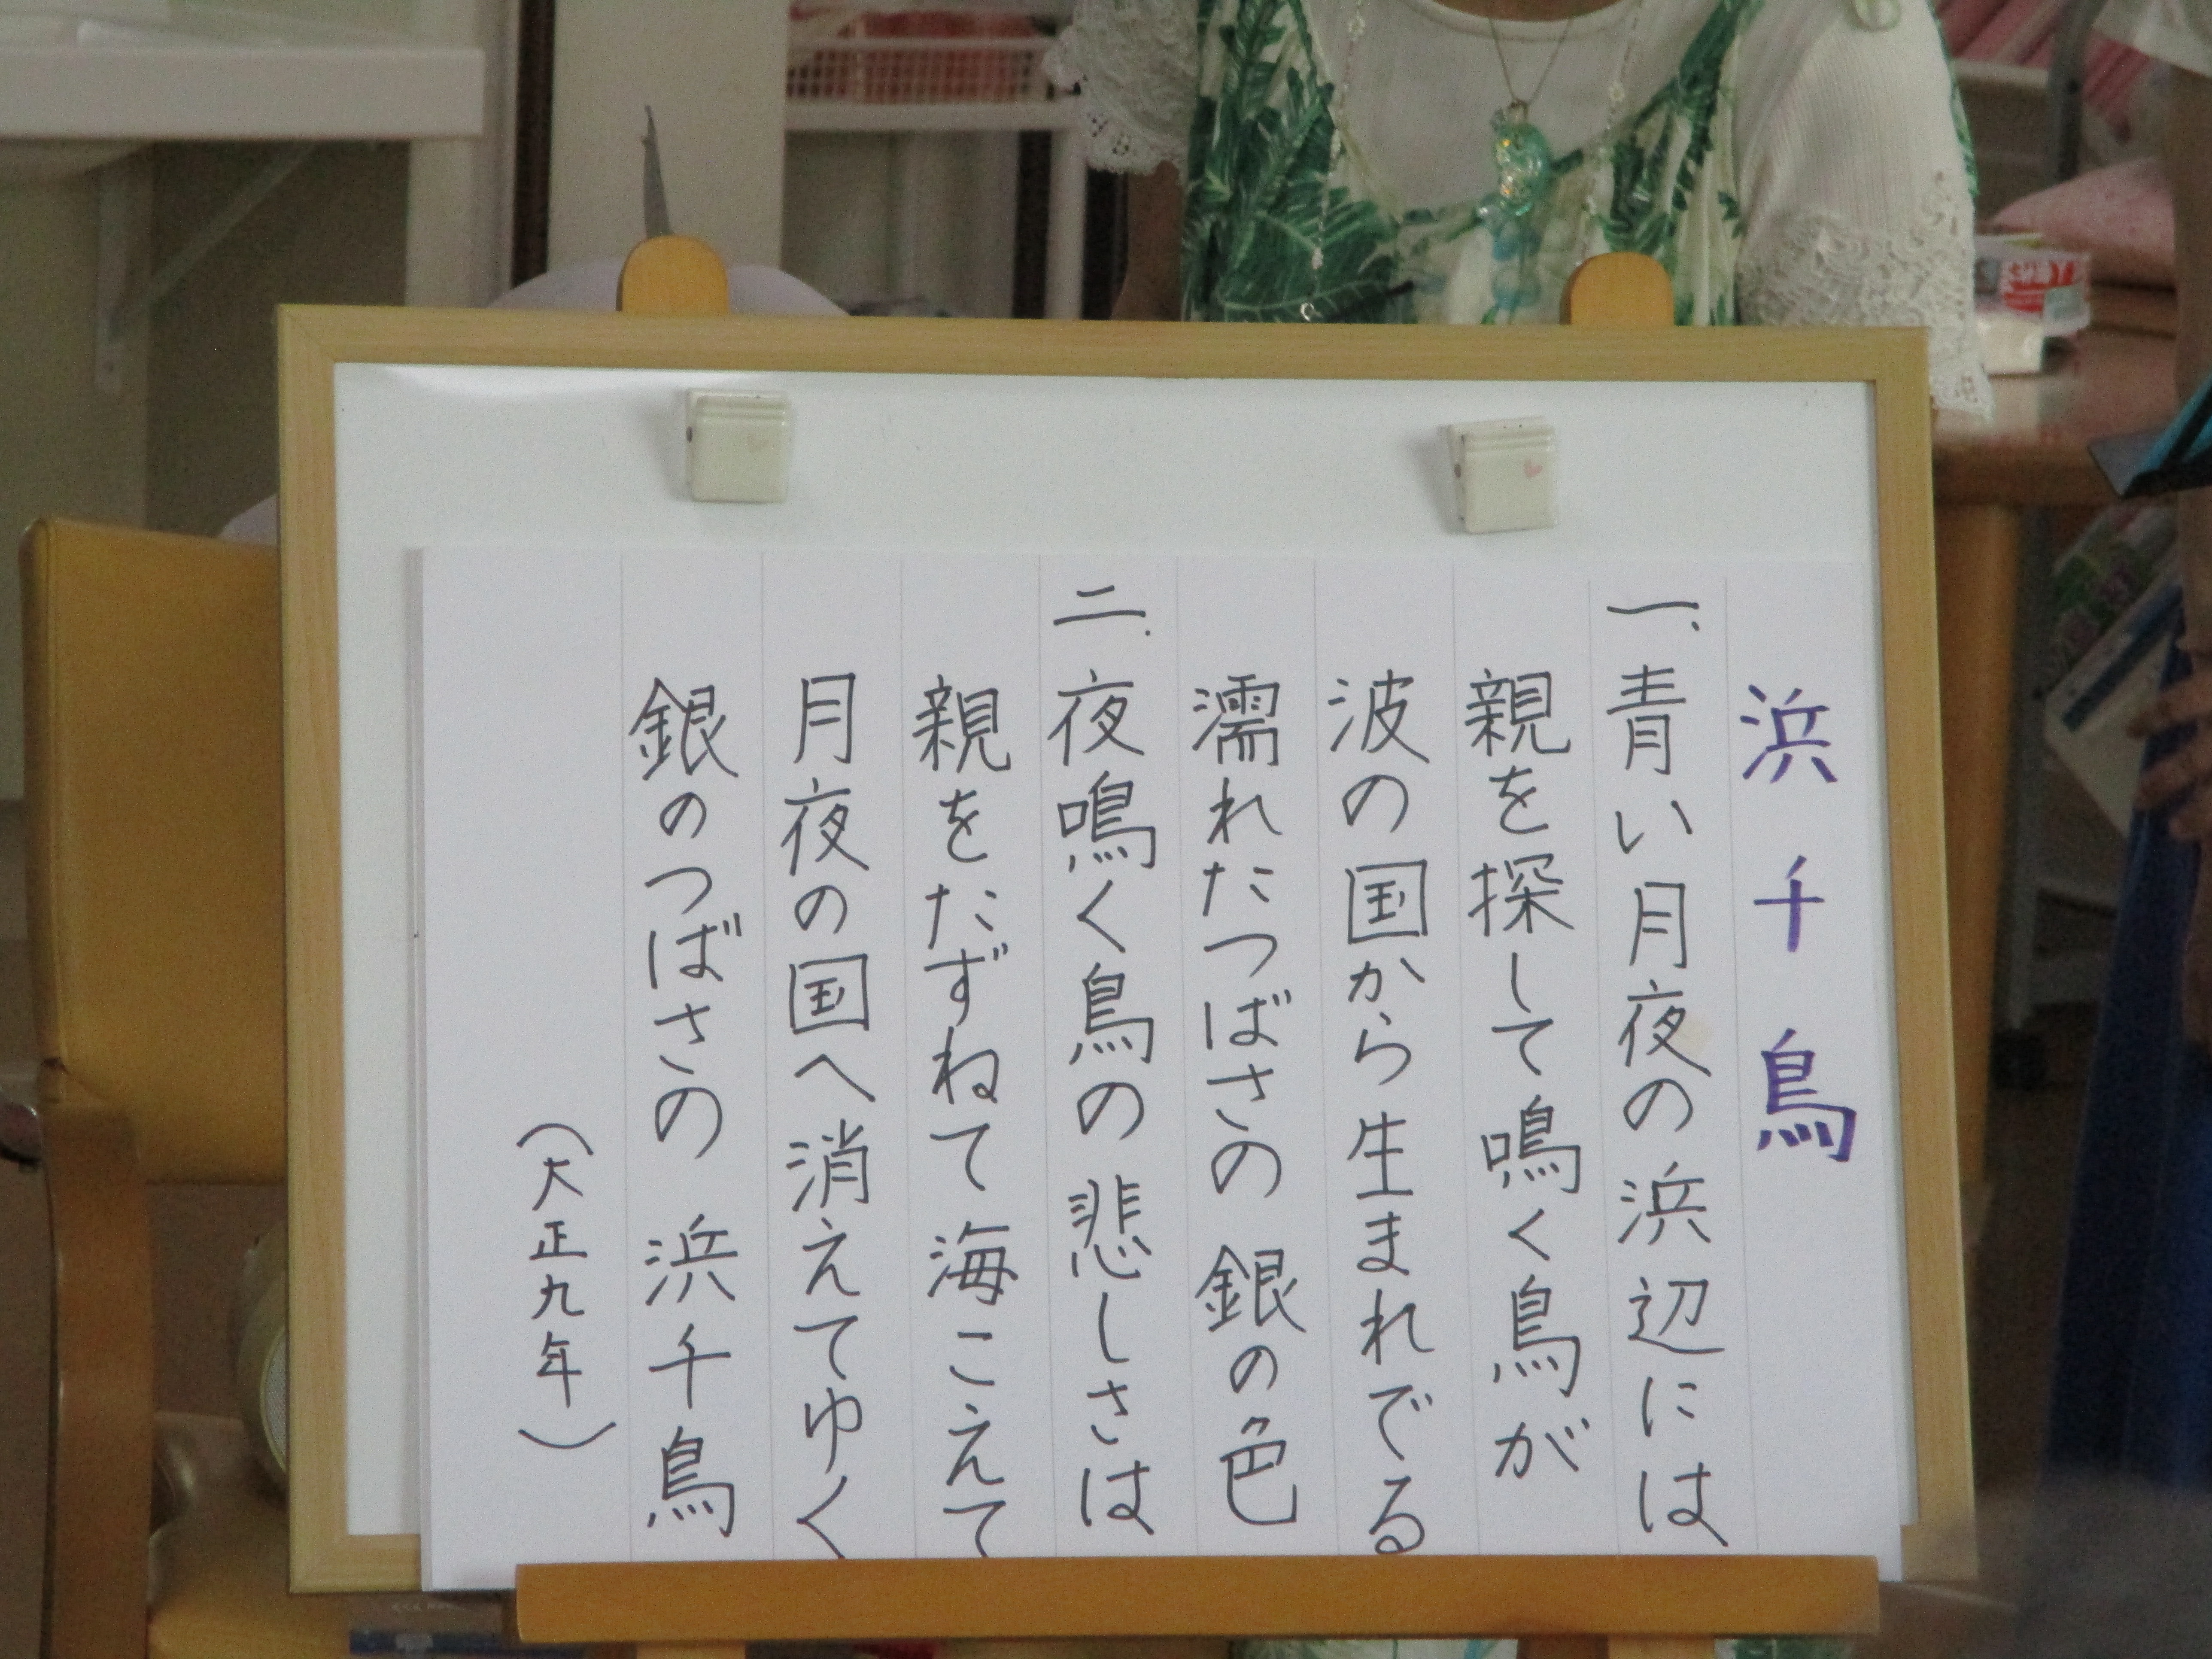 浜千鳥
一、青い月夜の浜辺には
親を探して鳴く鳥が
波の国から生まれでる
濡れたつばさの銀の色
二、夜鳴く鳥の悲しさは
親をたずねて海こえて
月夜の国へ消えてゆく
銀のつばさの浜千鳥
（大正九年）